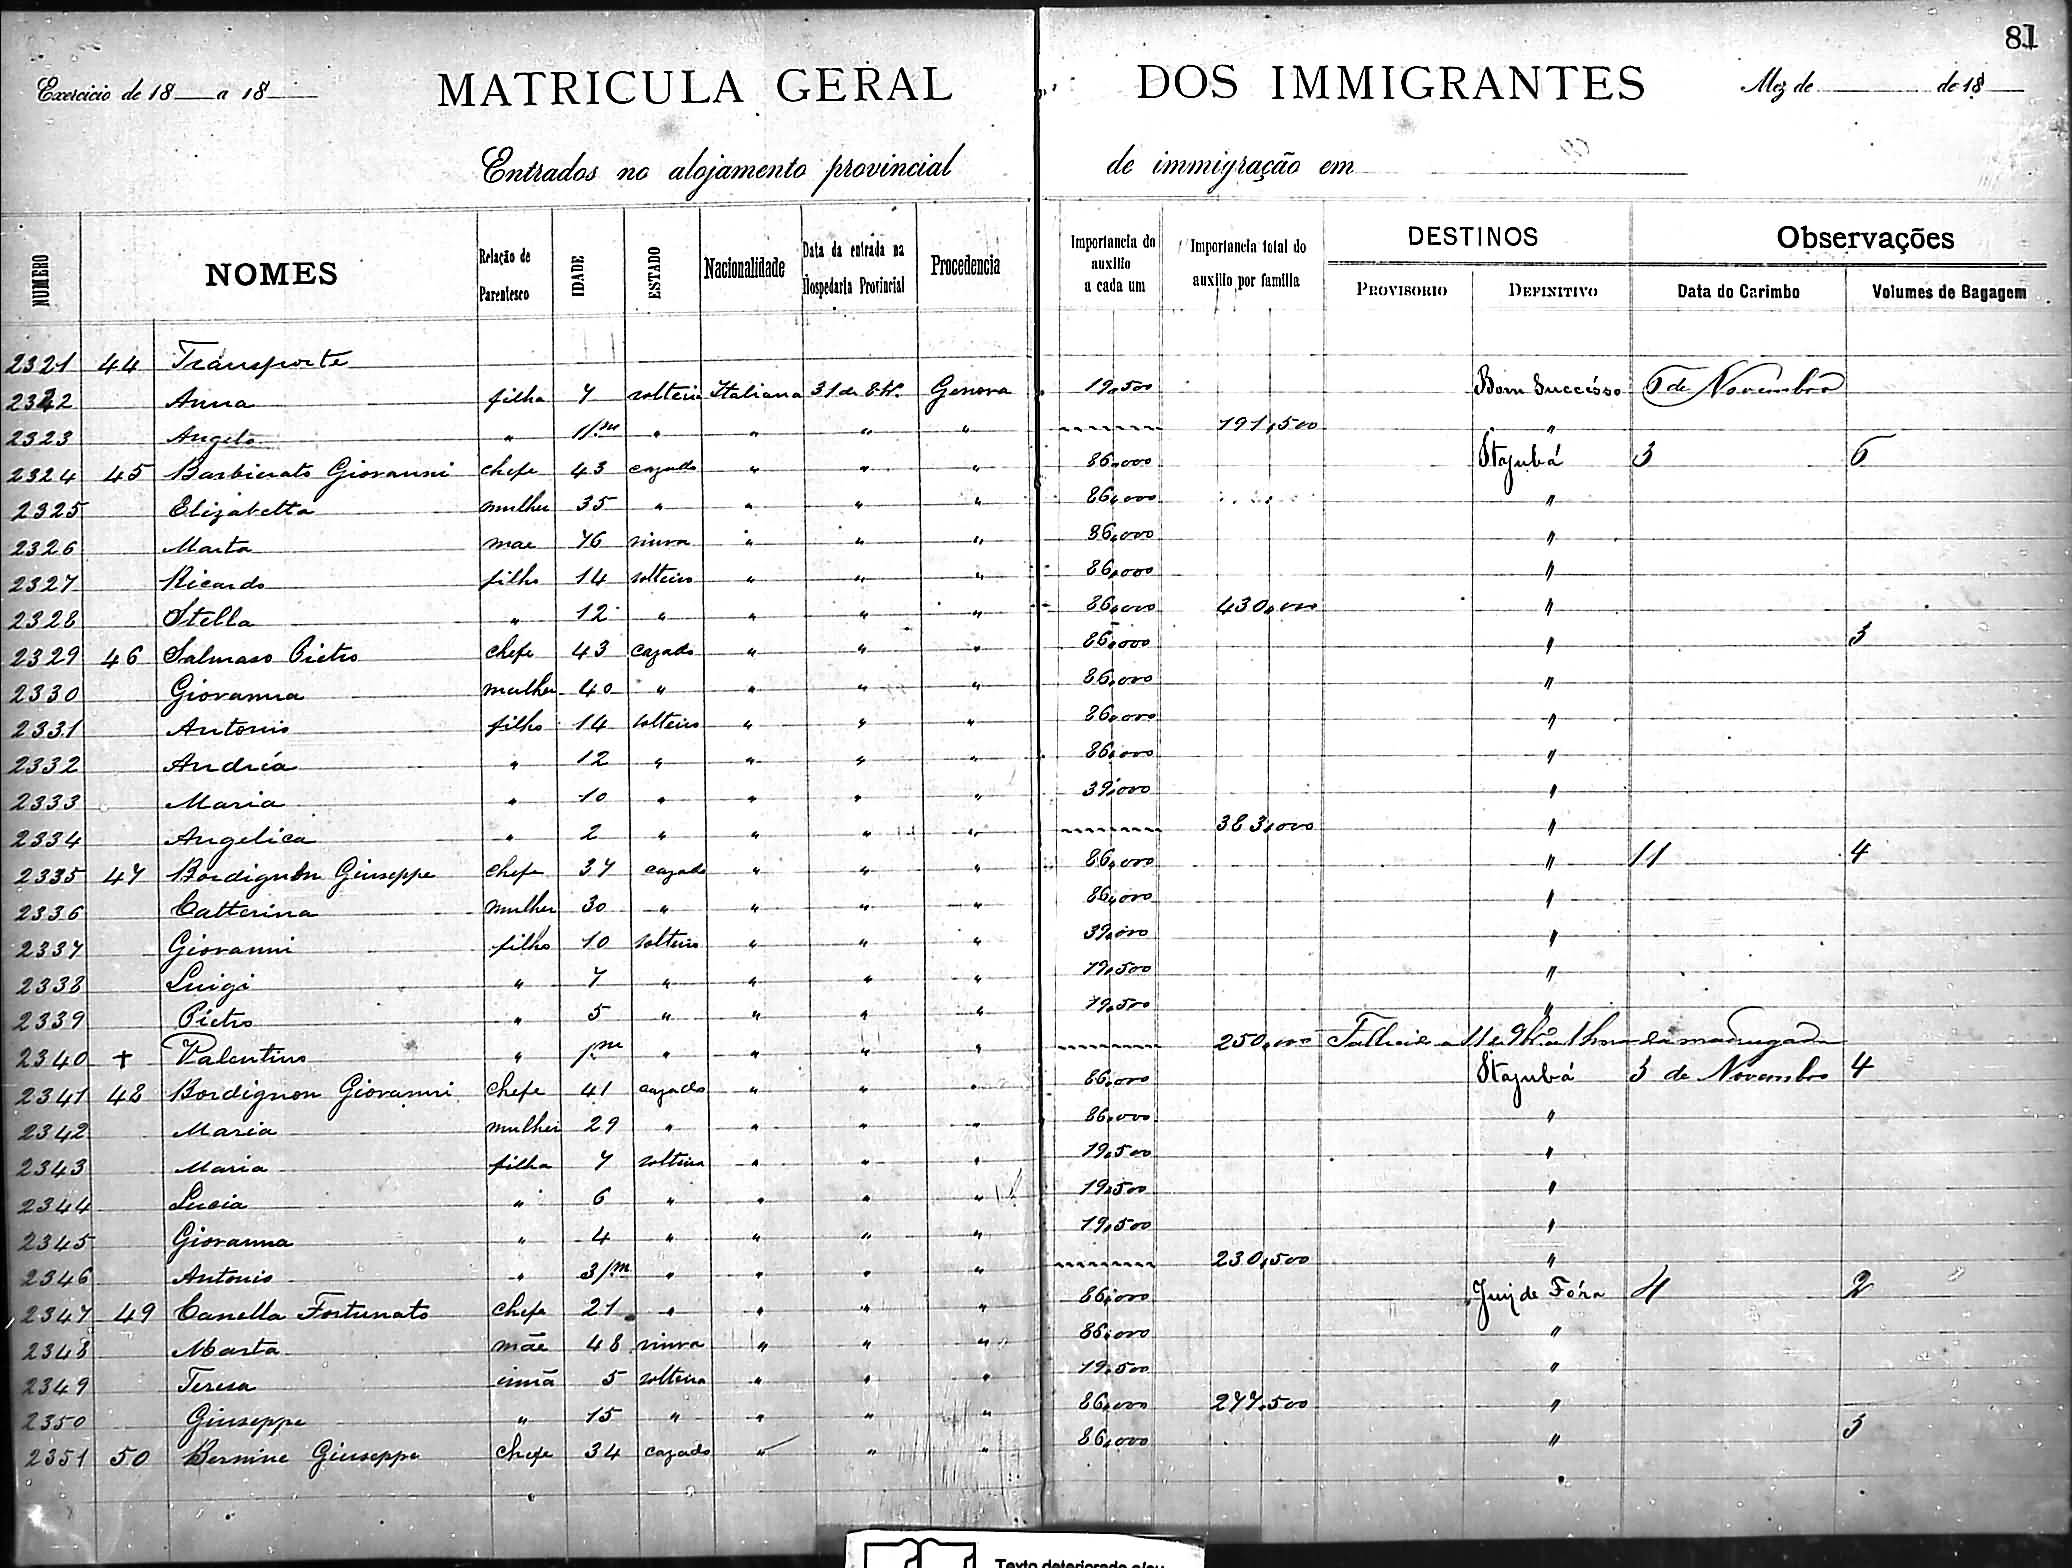 81
Exercicio de 18 a 18 MATRICULA GERAL DOS IMMIGRANTES Mez de de 18
Entrados no alojamento provincial de immigração em
NUMERO NOMES Relação de Parentesco IDADE ESTADO Nacionalidade Data da entrada na Hospedaria Provincial Procedencia Importancia do auxilio a cada um Importancia total do auxilio por familia DESTINOS PROVISORIO DEFINITIVO Observações Data do Carimbo Volumes de Bagagem
2321 44 Transporte
2322 Anna filha 7 solteira Italiana 31 de 8br. Genova 19,500 Bom Successo 6 de Novembro
2323 Angelo " 11/m " " " " 191,500 "
2324 45 Barbierato Giovanni chefe 43 cazado " " " 86,000 Itajubá 3 6
2325 Elizabetta mulher 35 " " " " 86,000 "
2326 Marta mae 76 viuva " " " 86,000 "
2327 Ricardo filho 14 solteiro " " " 86,000 "
2328 Stella " 12 " " " " 86,000 430,000 "
2329 46 Salmaso Pietro chefe 43 cazado " " " 86,000 " 3
2330 Giovanna mulher 40 " " " " 86,000 "
2331 Antonio filho 14 solteiro " " " 86,000 "
2332 Andréa " 12 " " " " 86,000 "
2333 Maria " 10 " " " " 39,000 "
2334 Angelica " 2 " " " " 383,000 "
2335 47 Bordignon Giuseppe chefe 37 cazado " " " 86,000 " 11 4
2336 Catterina mulher 30 " " " " 86,000 "
2337 Giovanni filho 10 solteiro " " " 39,000 "
2338 Luigi " 7 " " " " 19,500 "
2339 Pietro " 5 " " " " 19,500 "
2340 + Valentino " 1/m " " " " 250,000 hora da madrugada
2341 48 Bordignon Giovanni chefe 41 cazado " " " 86,000 Itajubá 3 de Novembro 4
2342 Maria mulher 29 " " " " 86,000 "
2343 Maria filha 7 solteira " " " 19,500 "
2344 Lucia " 6 " " " " 19,500 "
2345 Giovanna " 4 " " " " 19,500 "
2346 Antonio " 3/m " " " " 230,500 "
2347 49 Canella Fortunato chefe 21 " " " " 86,000 Juiz de Fóra 4 2
2348 Marta mãe 48 viuva " " " 86,000 "
2349 Teresa irmã 5 solteira " " " 19,500 "
2350 Giuseppe " 15 " " " " 86,000 277,500 "
2351 50 Bernine Giuseppe chefe 34 cazado " " " 86,000 " 3